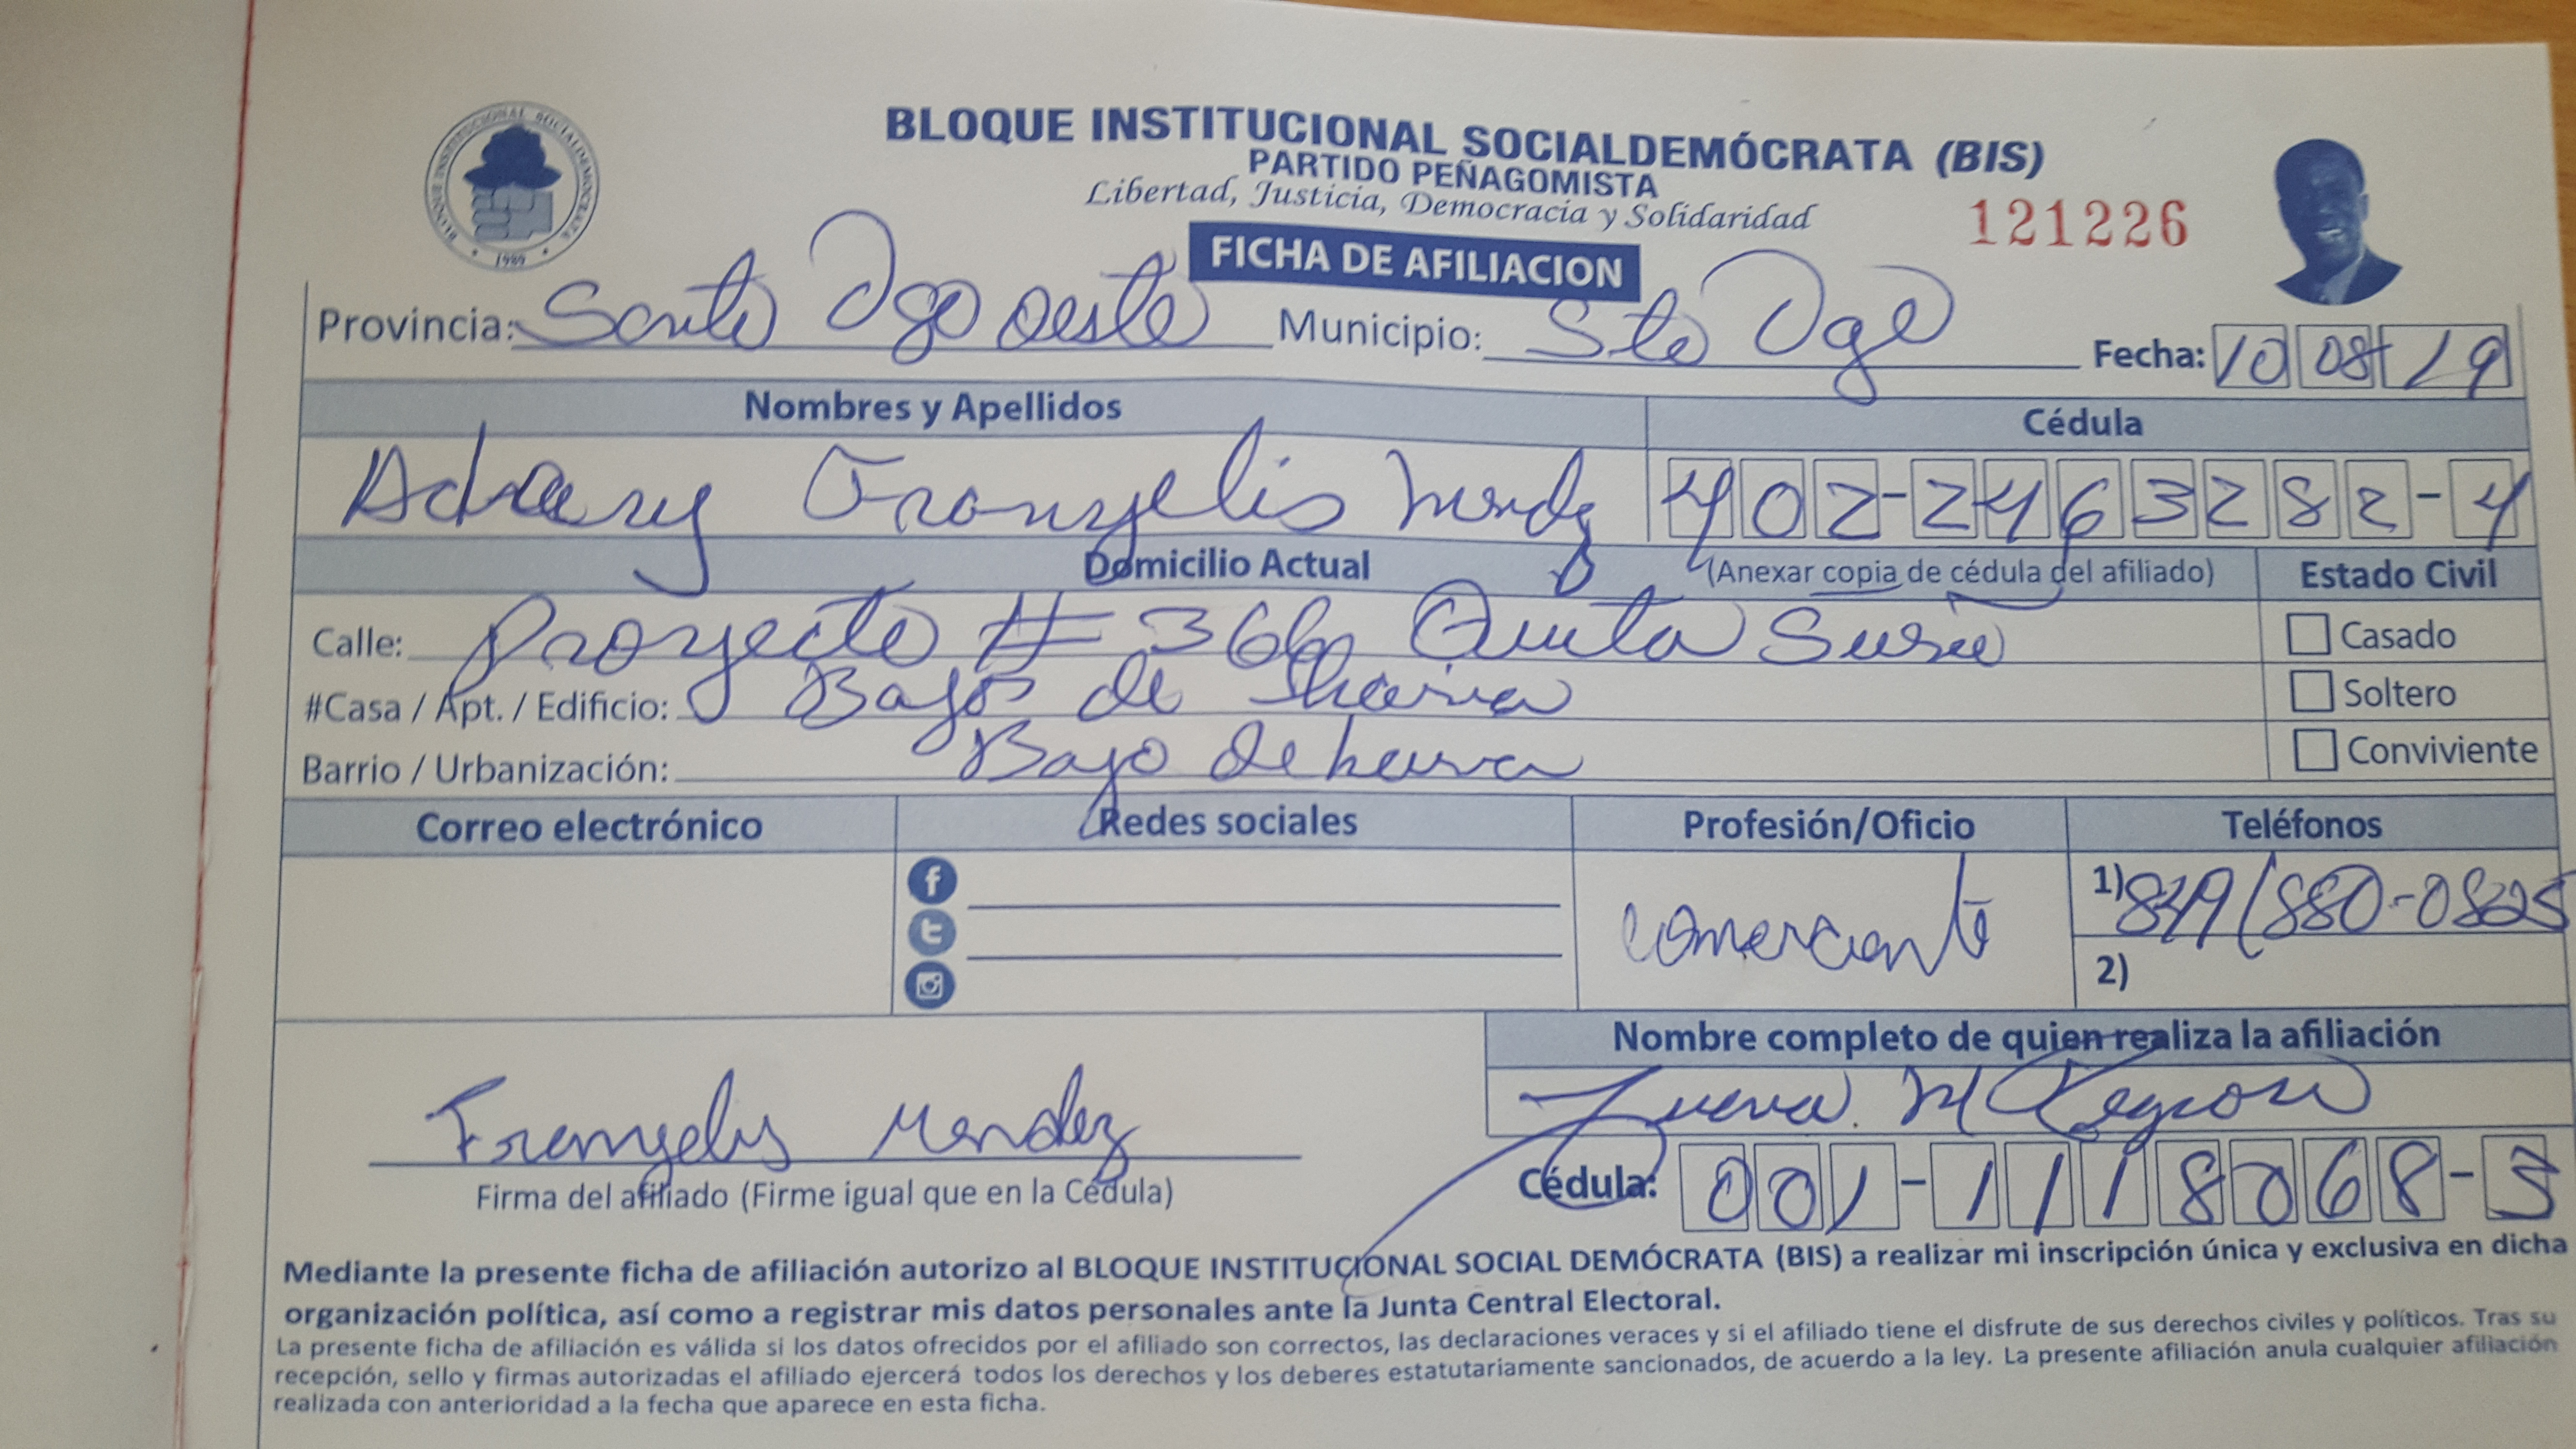 BLOQUE INSTITUCIONAL SOCIALDEMOCRATA
1989
BLOQUE INSTITUCIONAL SOCIALDEMÓCRATA (BIS)
PARTIDO PEÑAGOMISTA
Libertad, Justicia, Democracia y Solidaridad
121226
FICHA DE AFILIACION
Provincia: Santo Dgo oeste Municipio: Sto Dgo Fecha: 10 08 19
Nombres y Apellidos Cédula
Franyelis 402-2463282-4
Domicilio Actual (Anexar copia de cédula del afiliado) Estado Civil
Calle: Proyecto # 36 Quita Sueño Casado
#Casa / Apt. / Edificio: Bajos de Haina Soltero
Barrio / Urbanización: Bajo de haina Conviviente
Correo electrónico Redes sociales Profesión/Oficio Teléfonos
f
t
comerciante
1) 880-0825
2)
Nombre completo de quien realiza la afiliación
Franyelis Mendez
Firma del afiliado (Firme igual que en la Cédula)
Cédula: 001-1118068-
Mediante la presente ficha de afiliación autorizo al BLOQUE INSTITUCIONAL SOCIAL DEMÓCRATA (BIS) a realizar mi inscripción única y exclusiva en dicha
organización política, así como a registrar mis datos personales ante la Junta Central Electoral.
La presente ficha de afiliación es válida si los datos ofrecidos por el afiliado son correctos, las declaraciones veraces y si el afiliado tiene el disfrute de sus derechos civiles y políticos. Tras su
recepción, sello y firmas autorizadas el afiliado ejercerá todos los derechos y los deberes estatutariamente sancionados, de acuerdo a la ley. La presente afiliación anula cualquier afiliación
realizada con anterioridad a la fecha que aparece en esta ficha.